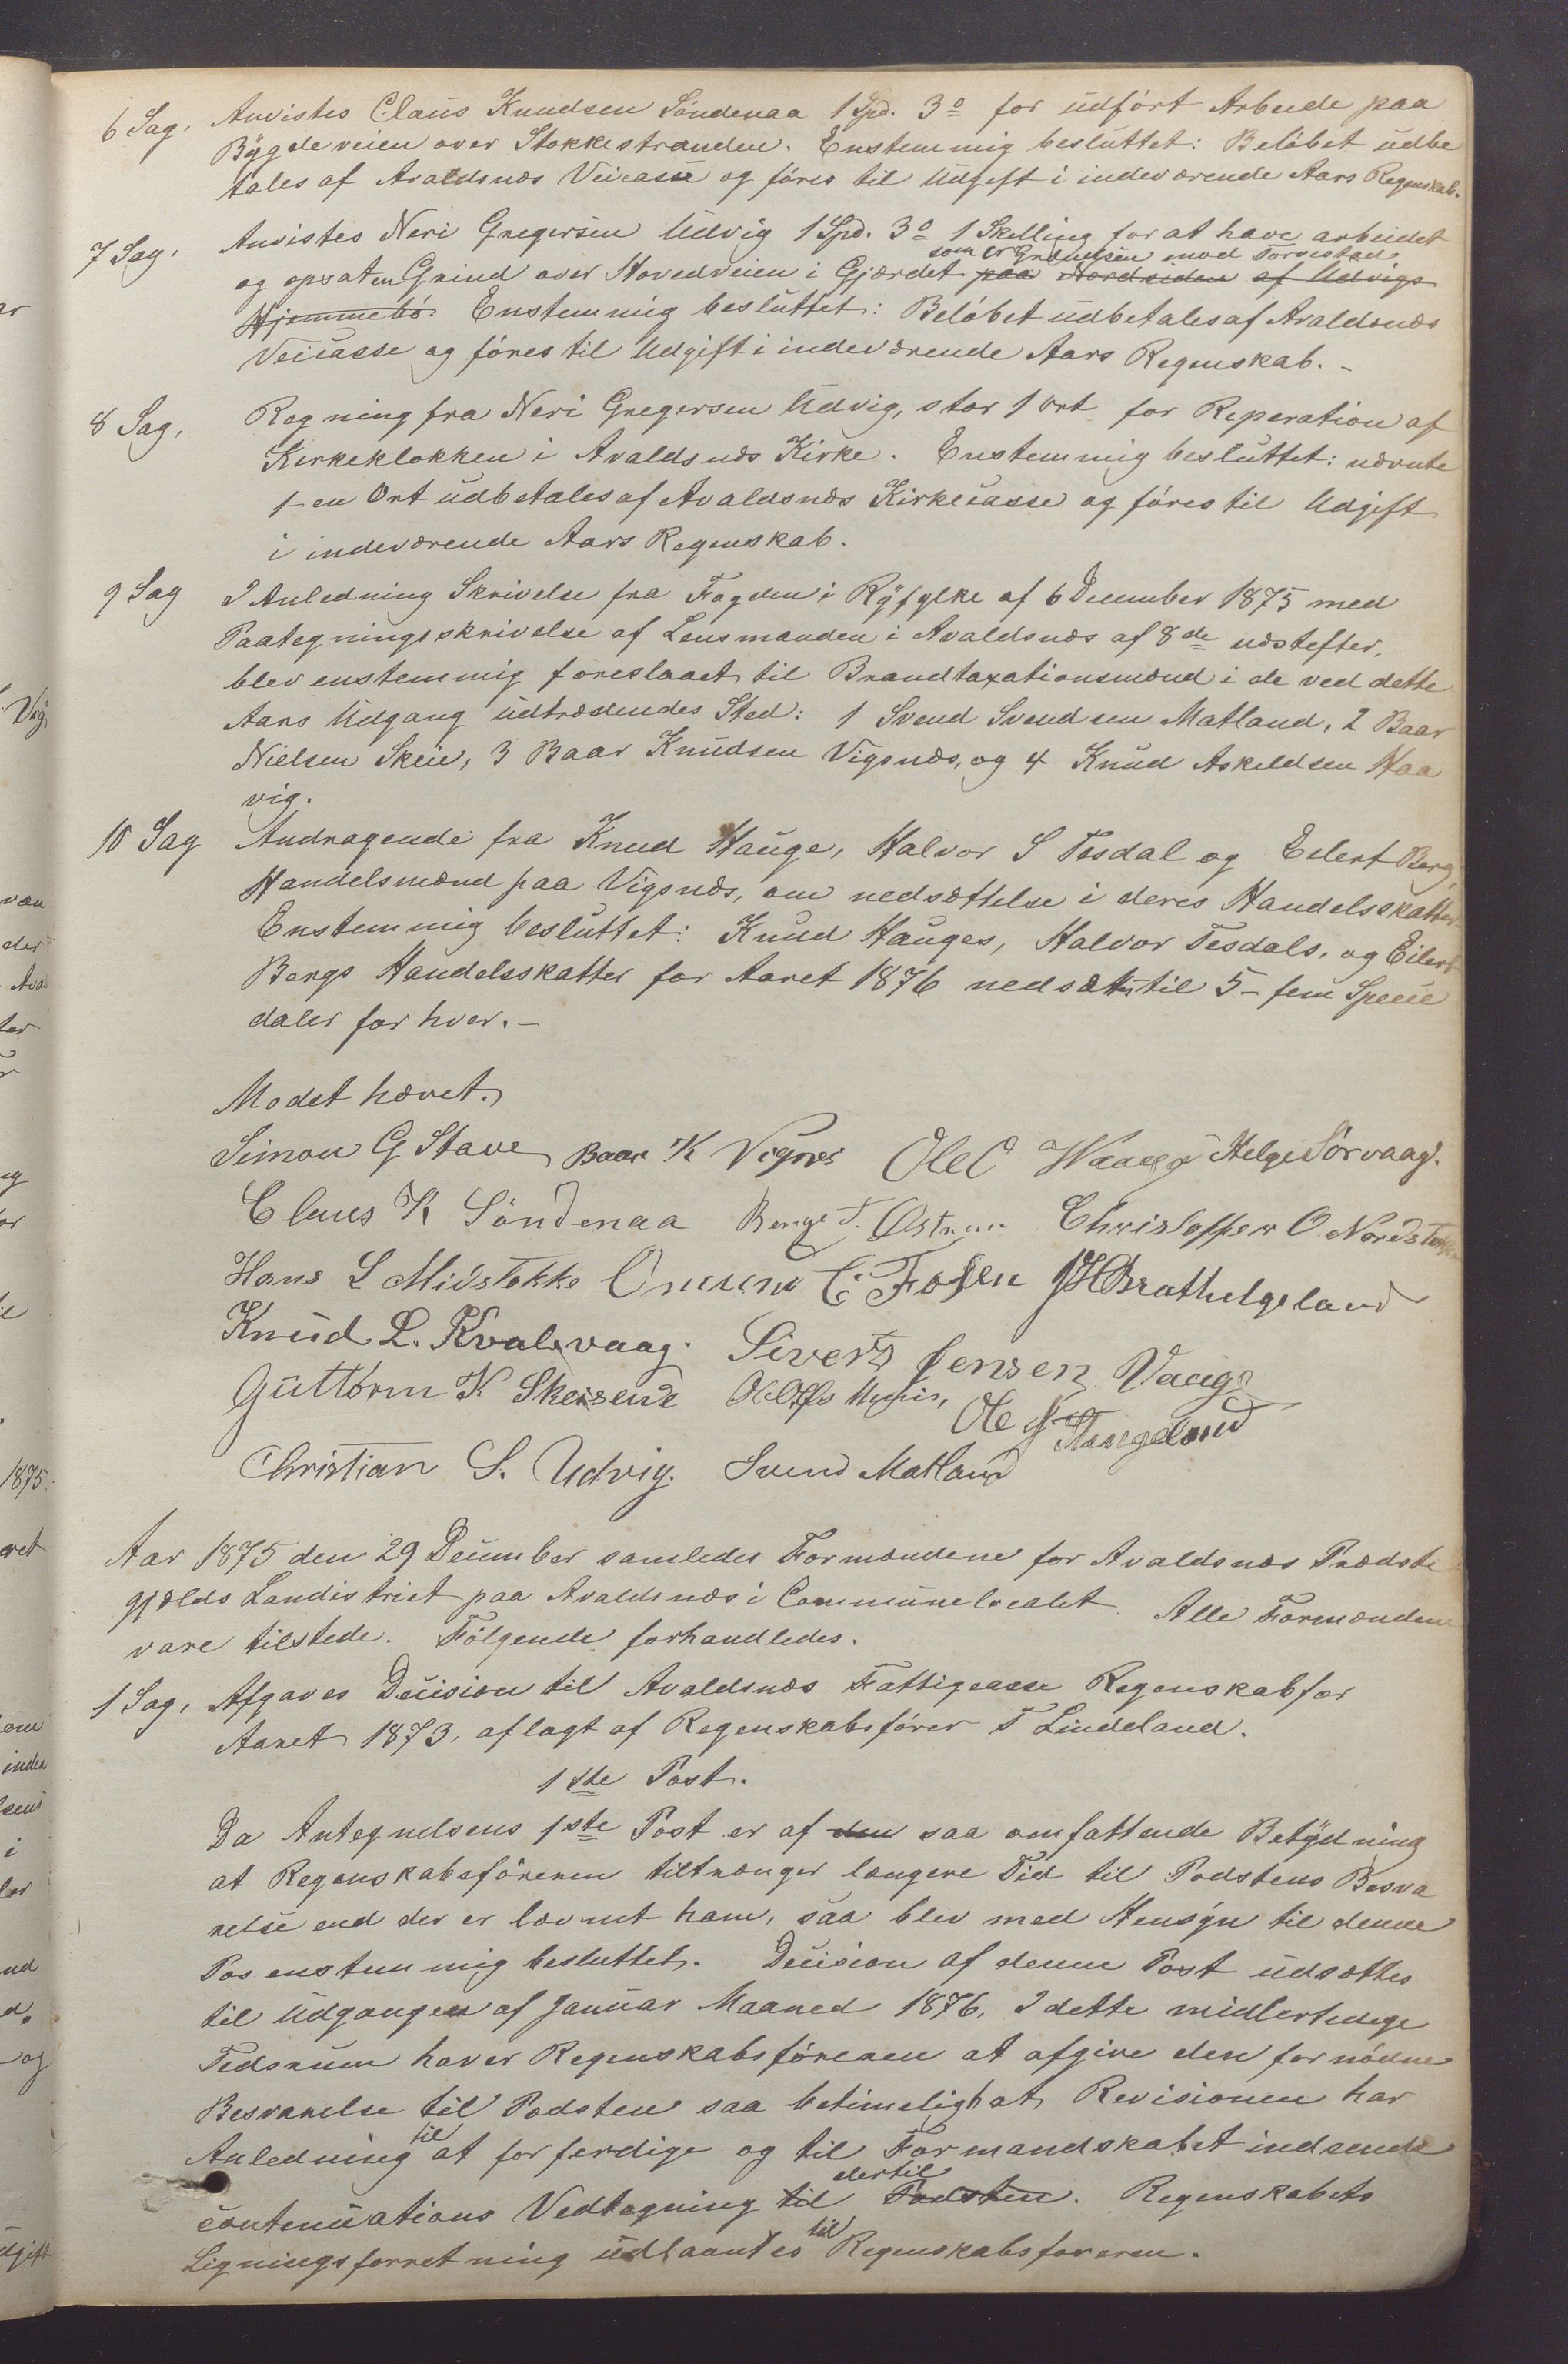 6 Sag. Anvistes Claus Knudsen Søndenaa 1 Spd. 3 o for udført Arbeide paa
Bygdeveien over Stokkestranden. Enstemmig besluttet: Beløbet udbe
tales af Avaldsnæs Veicasse og føres til Udgift i indeværende Aars Regnskab.
7 Sag. Anvistes Neri Gregersen Udvig 1 Spd. 3 o 1 Skilling for at have arbeidet
som er Grændsen mod Torvestad
og opsat en Grind over Hovedveien i Gjærdet paa Nordsiden af Udvigs
Hjemmebø. Enstemmig besluttet: Beløbet udbetales af Avaldsnæs
Veicasse og føres til Udgift i indeværende Aars Regnskab. -
8 Sag. Regning fra Neri Gregersen Udvig, stor 1 Ort for Reperation af
Kirkeklokken i Avaldsnæs Kirke. Enstemmig besluttet: nævnte
1 - en Ort udbetales af Avaldsnæs Kirkecasse og føres til Udgift
i indeværende Aars Regnskab.
9 Sag I Anledning Skrivelse fra Fogden i Ryfylke af 6 December 1875 med
Paategningsskrivelse af Lensmanden i Avaldsnæs af 8de næstefter,
blev enstemmig foreslaaet til Brandtaxationsmænd i de ved dette
Aars Udgang udtrædendes Sted: 1 Svend Svendsen Matland, 2 Baar
Nielsen Skeie, 3 Baar Knudsen Vigsnæs, og 4 Knud Askildsen Haa
vig.
10 Sag Andragende fra Knud Hauge, Halvor S Tesdal og Eilert Berg
Handelsmænd paa Vigsnæs, om nedsættelse i deres Handelsskatter
Enstemmig besluttet: Knud Hauges, Halvor Tesdals, og Eilert
Bergs Handelsskatter for Aaret 1876 nedsættes til 5 - fem Specie
daler for hver. -
Mødet hævet.
Simon G Stave Baar K Vignes Ole O Waage Helge Sørvaag.
Claus K Søndenaa Berge T. Østrem Christoffer O. Nordstokke
Hans L Midstokke Omund E. Fosen JH Brathelgeland
Knud L. Kvalevaag. Sivert Jensen Vaage
Guttorm K Skeisend
Ole J Stangeland
Christian S. Udvig. Svend Matland
Aar 1875 den 29 December samledes Formændene for Avaldsnæs Prædste
gjælds Landistrict paa Avaldsnæs i Communelocalet. Alle Formændene
vare tilstede. Følgende forhandledes.
1 Sag. Afgaves Decision til Avaldsnæs Fattigcasse Regenskab for
Aaret 1873, aflagt af Regenskabsfører T Lindeland.
1ste Post.
Da Antegnelsens 1ste Post er af den saa omfattende Betydning
at Regenskabsføreren tiltrænger længere Tid til Podstens Besva
relse end der er levnet ham, saa blev med Hensyn til denne
Pos enstemmig besluttet. Decision af denne Post udsættes
til Udgangen af Januar Maaned 1876. I dette midlertidige
Tidsrum haver Regenskabsføreren at afgive den fornødne
Besvarelse til Podsten saa betimelight at Revisionen har
til
Anledning at forferdige og til Formandskabet indsende
dertil
continuations Vedtegning til Podsten. Regenskabets
til
Ligningsforretning udlaantes Regenskabsføreren.